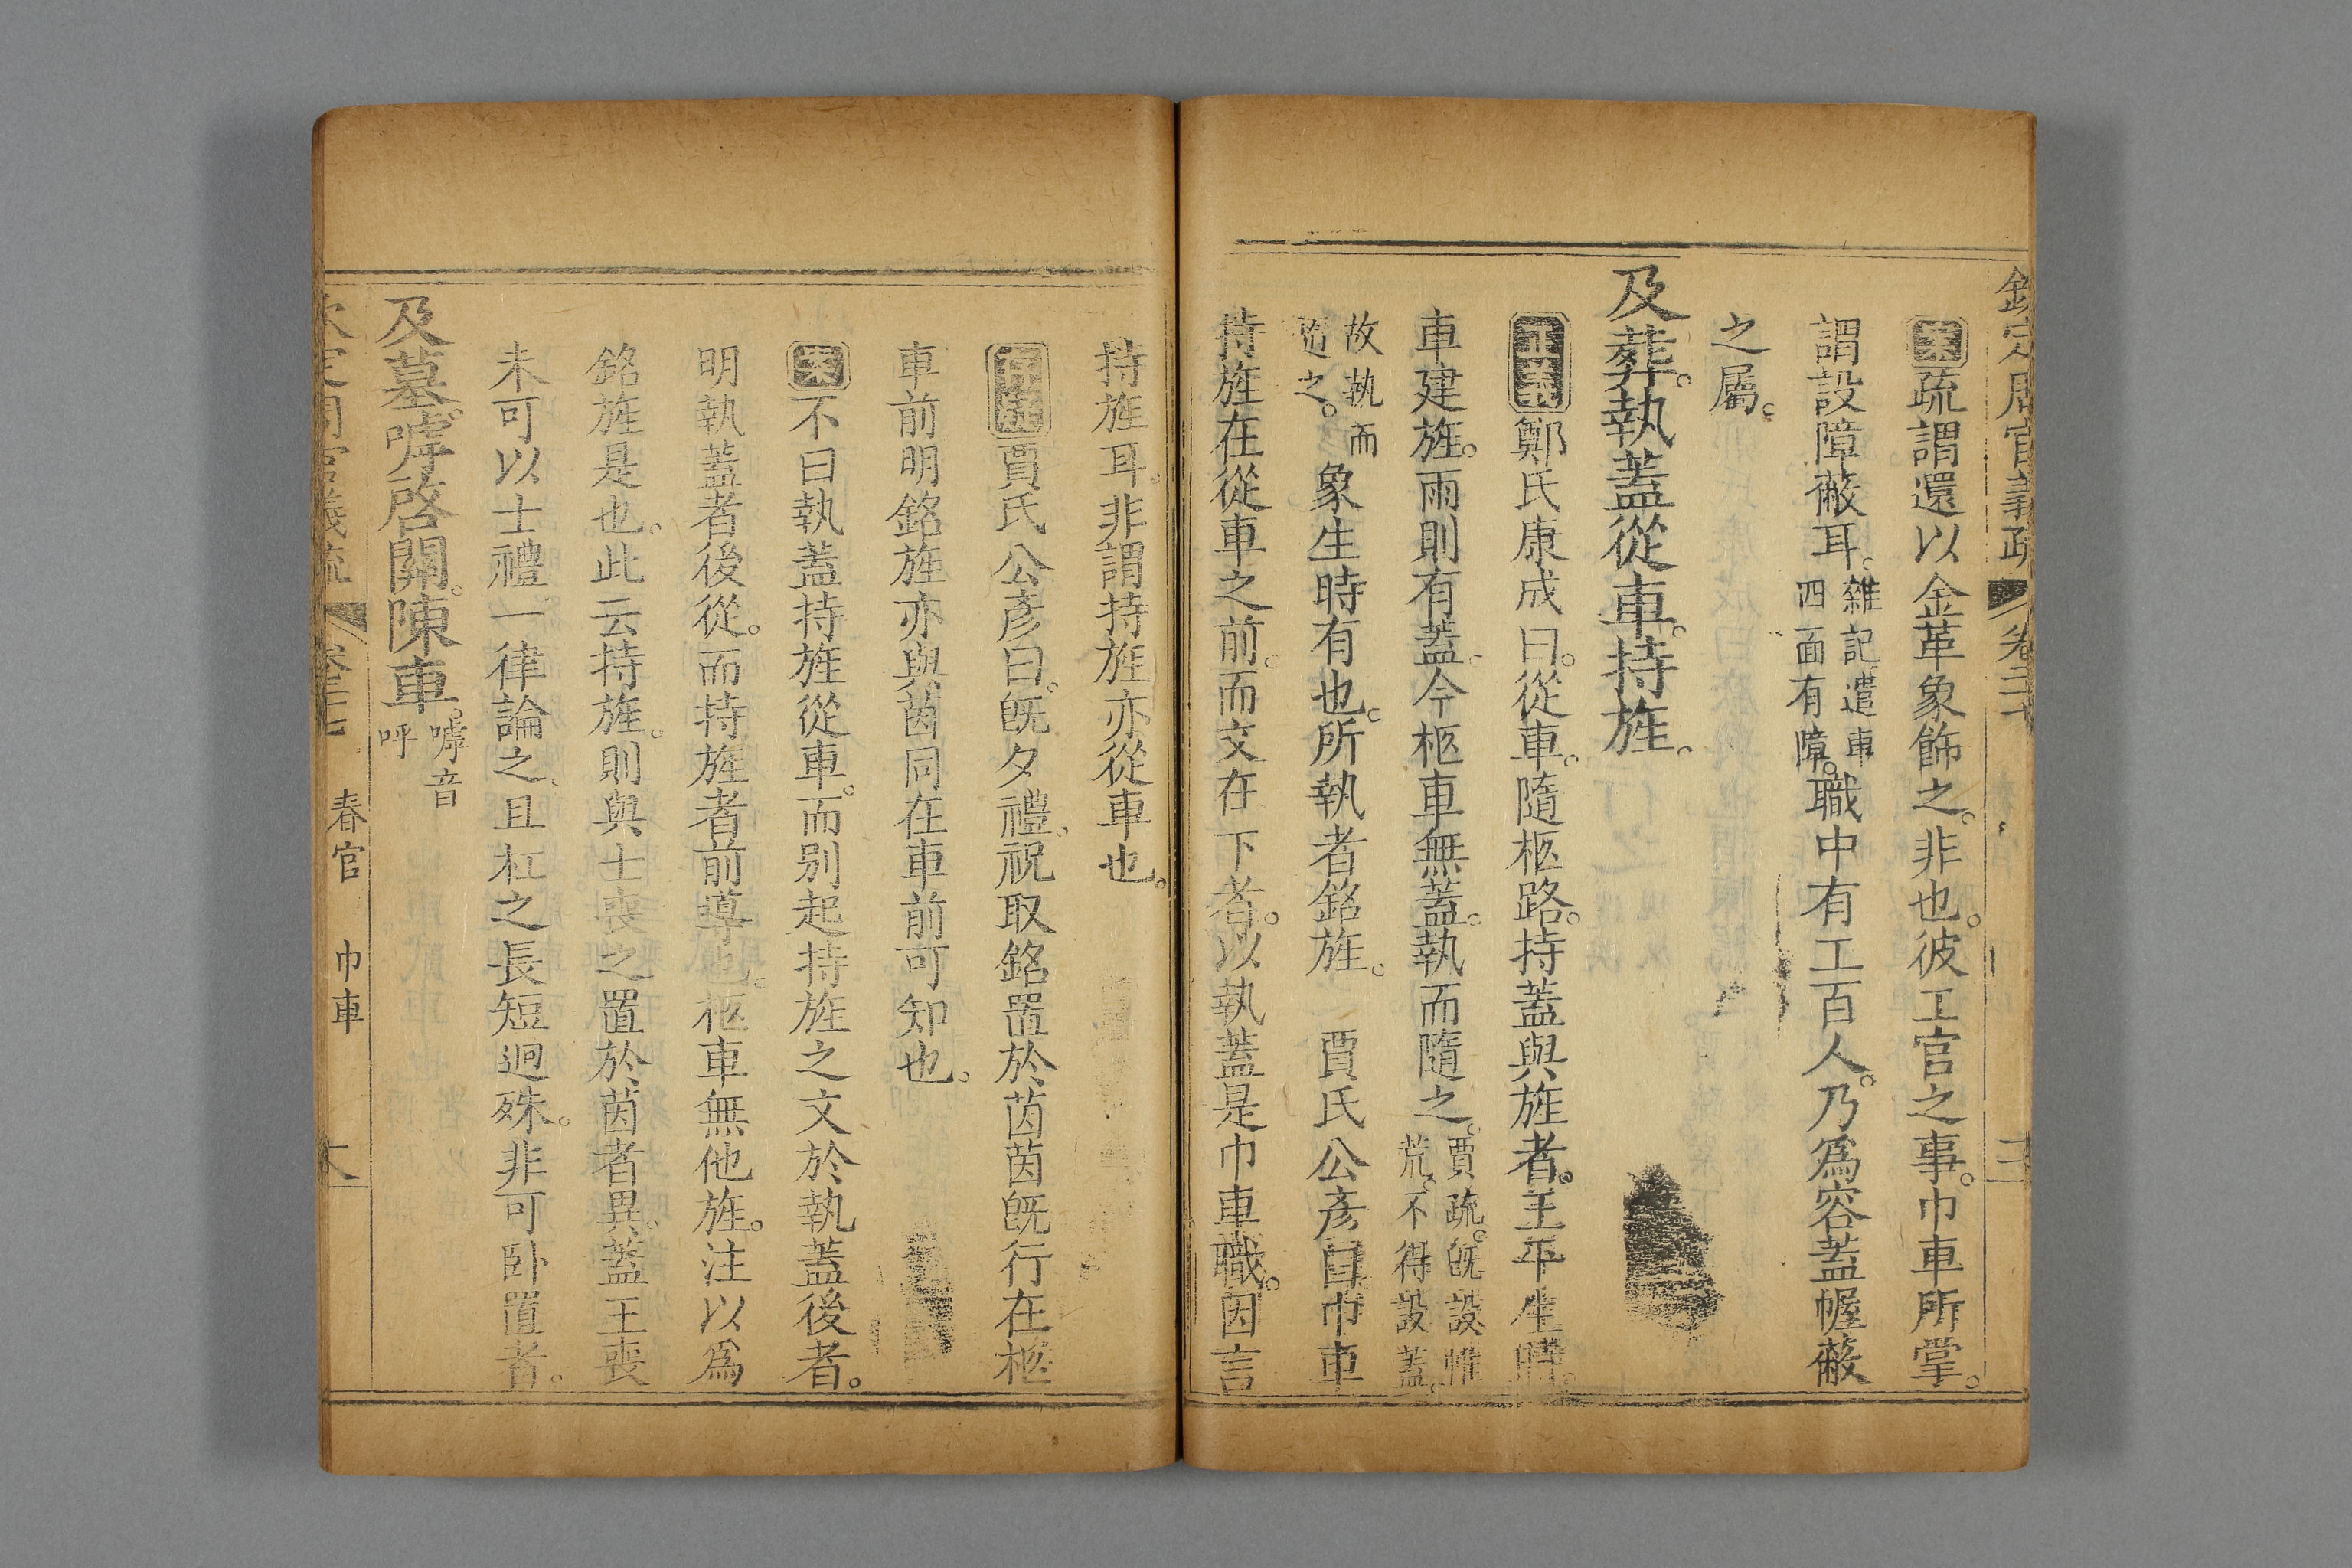 欽定周官義疏 卷二十七
案疏謂還以金革象飾之。非也。彼工官之事。巾車所掌。
謂設障蔽耳。雜記遣車四面有障。職中有工百人。乃爲容蓋幄蔽
之屬。
及葬。執蓋從車。持旌。
正義鄭氏康成曰。從車。隨柩路。持蓋與旌者。王平生時。
車建旌。雨則有蓋。今柩車無蓋。執而隨之。賈疏。旣設帷荒。不得設蓋。
故執而隨之。象生時有也。所執者銘旌。 賈氏公彥曰巾車
持旌在從車之前。而文在下者。以執蓋是巾車職。因言
持旌耳。非謂持旌亦從車也。
賈氏公彥曰。旣夕禮。祝取銘置於茵茵旣行在柩
車前明銘旌亦與茵同在車前可知也。
案不曰執蓋持旌從車。而别起持旌之文於執蓋後者。
明執蓋者後從。而持旌者前導也。柩車無他旌。注以爲
銘旌是也。此云持旌。則與士喪之置於茵者異。蓋王喪
未可以士禮一律論之、且杠之長短迥殊。非可卧置者。
及墓。嘑啓關。陳車。嘑音呼
欽定周官義疏 卷二十七 春官 巾車